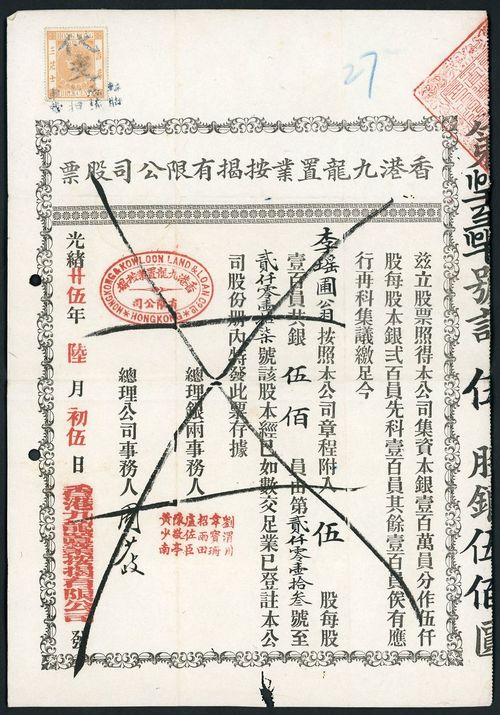 27
香港九龍置業按揭有限公司股票
茲立股票照得本公司集資本銀壹百萬員分作伍仟
股每股本銀弍百員先科壹百員其餘壹百員俟有應
行再科集議繳足今
李瑤圃翁按照本公司章程附入伍股每股
壹百員共銀伍佰員由第貳仟零壹拾叁號至
貳仟零壹柒號該股本經已如數交足業已登註本公
司股份册內特發此票存據
總理銀兩事務人
劉渭川
韋寶珊
招雨田
盧佐臣
陳敬亭
黃少南
總理公司事務人
光緒廿伍年陸月初伍日香港九龍置業按揭有限公司發
HONGKONG & KOWLOON LAND & LOAN CO LD
香港九龍置業按揭
有限公司
HONGKONG
號計伍股銀伍佰圓